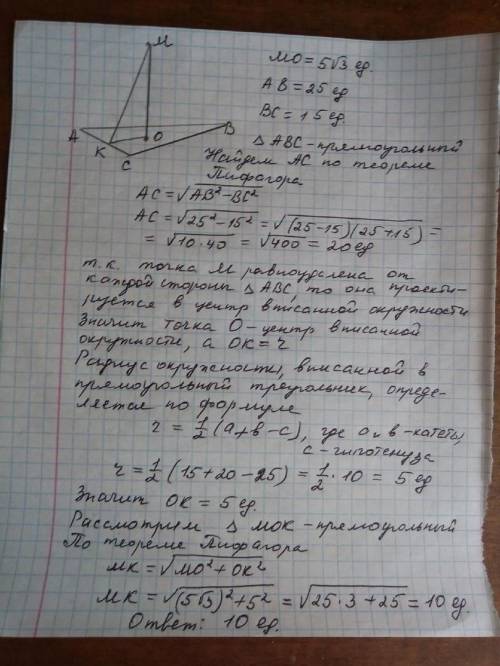 M
A
O
B
K
C
MO = 5√3 ед.
AB = 25 ед
BC = 15 ед.
△ABC - прямоугольный
Найдем AC по теореме
Пифагора
AC = √AB² - BC²
AC = √25² - 15² = √(25-15)(25+15) =
= √10·40 = √400 = 20 ед
т.к. точка M равноудалена от
каждой стороны △ABC, то она проекти-
руется в центр вписанной окружности
Значит точка O - центр вписанной
окружности, а OK = r
Радиус окружности, вписанной в
прямоугольный треугольник, опреде-
ляется по формуле
r = 1/2 (a+b-c), где a и b - катеты,
c - гипотенуза
r = 1/2 (15+20-25) = 1/2 · 10 = 5 ед
Значит OK = 5 ед.
Рассмотрим △MOK - прямоугольный
По теореме Пифагора
MK = √MO² + OK²
MK = √(5√3)² + 5² = √25·3 + 25 = 10 ед.
Ответ: 10 ед.